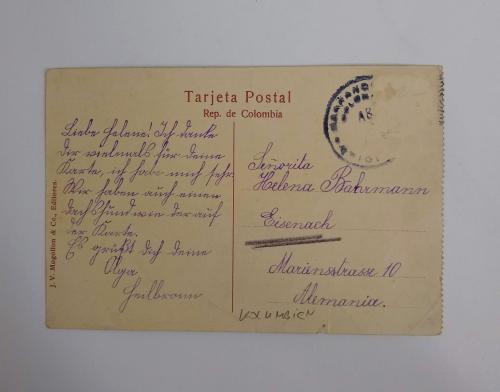 Tarjeta Postal
Rep. de Colombia
Liebe Helene! Ich danke
Dir vielmals für deine
Karte, ich habe mich sehr
Wir haben auch einen
Dachshund wie der auf
der Karte.
Es grüßt Dich deine
Olga
Heilbronn
J. V. Mogollon & Co., Editores.
Señorita
Helena Bährmann
Eisenach
Mariensstrasse 10
Alemania.
KOLUMBIEN